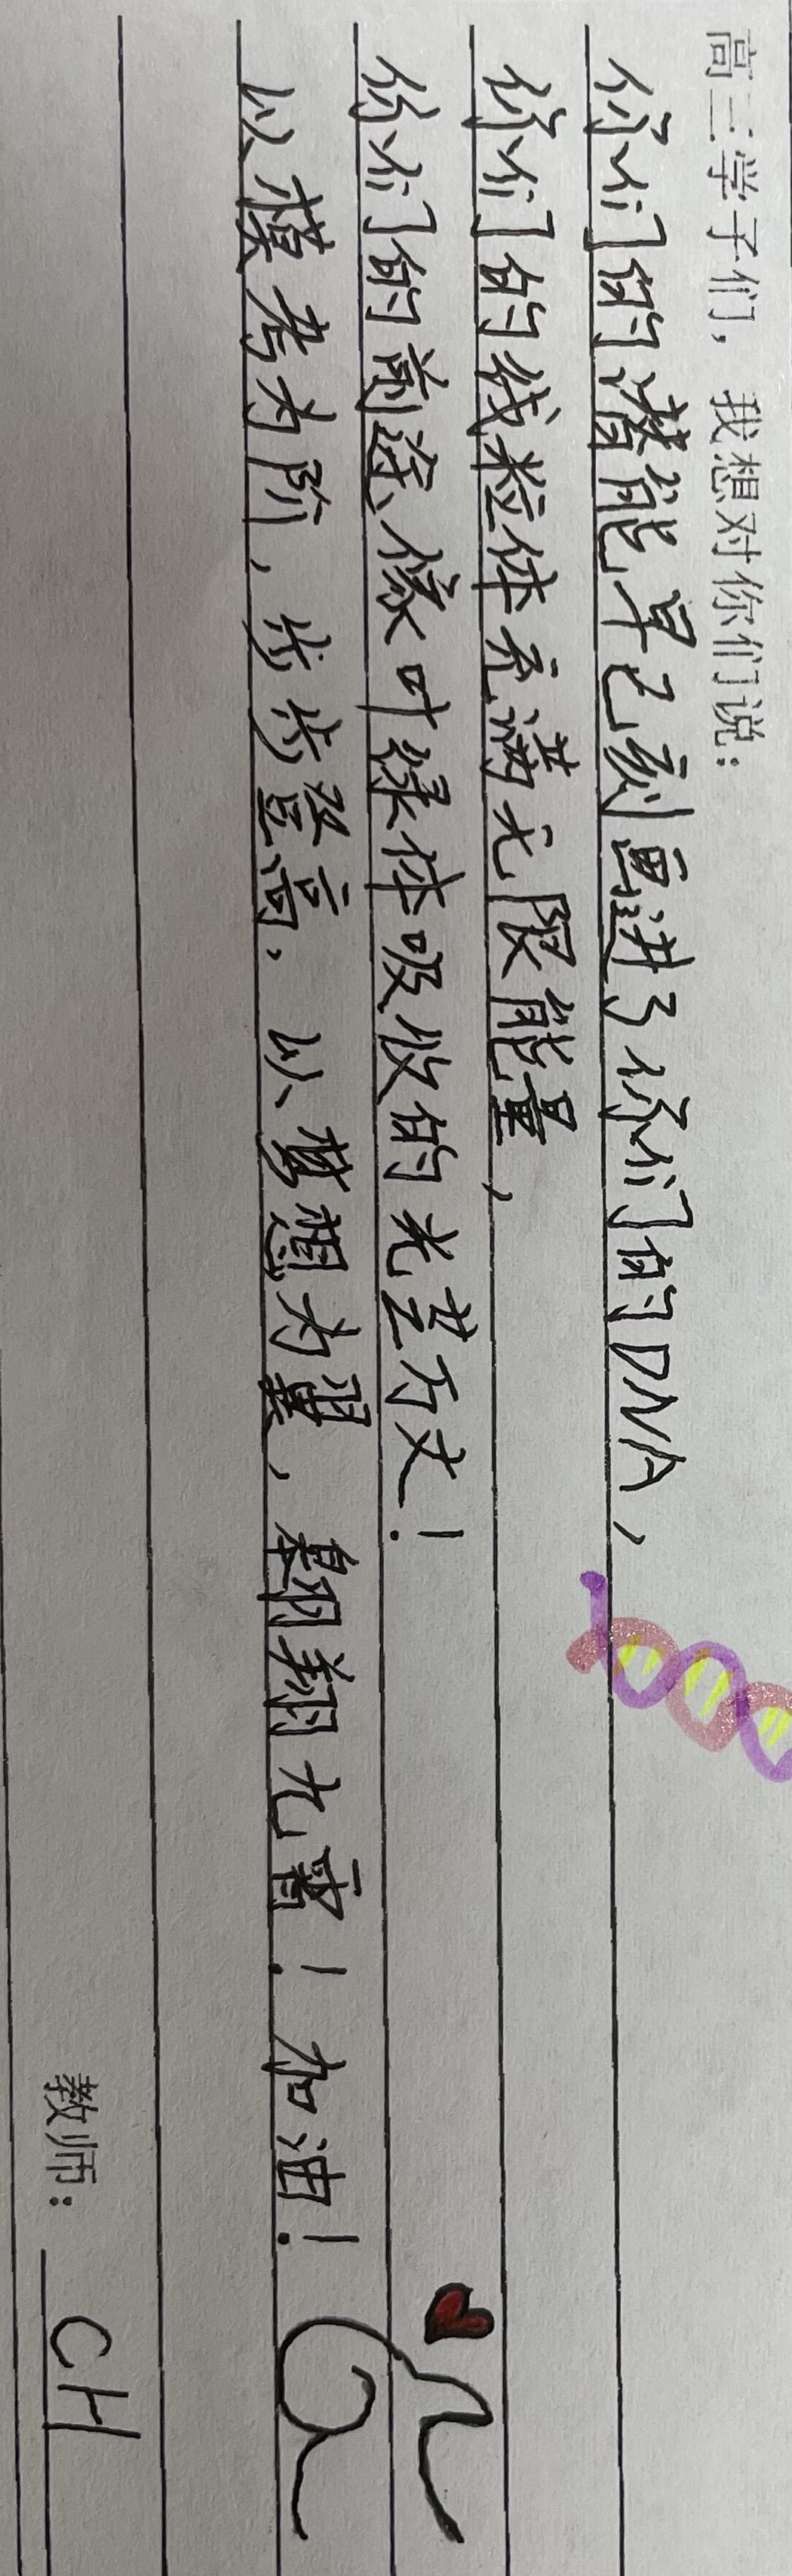 高三学子们，我想对你们说：
你们的潜能早已刻画进了你们的DNA，
你们的线粒体充满无限能量，
你们的前途像叶绿体吸收的光芒万丈！
以模考为阶，步步登高，以梦想为翼，翱翔九霄！加油！
教师：CH